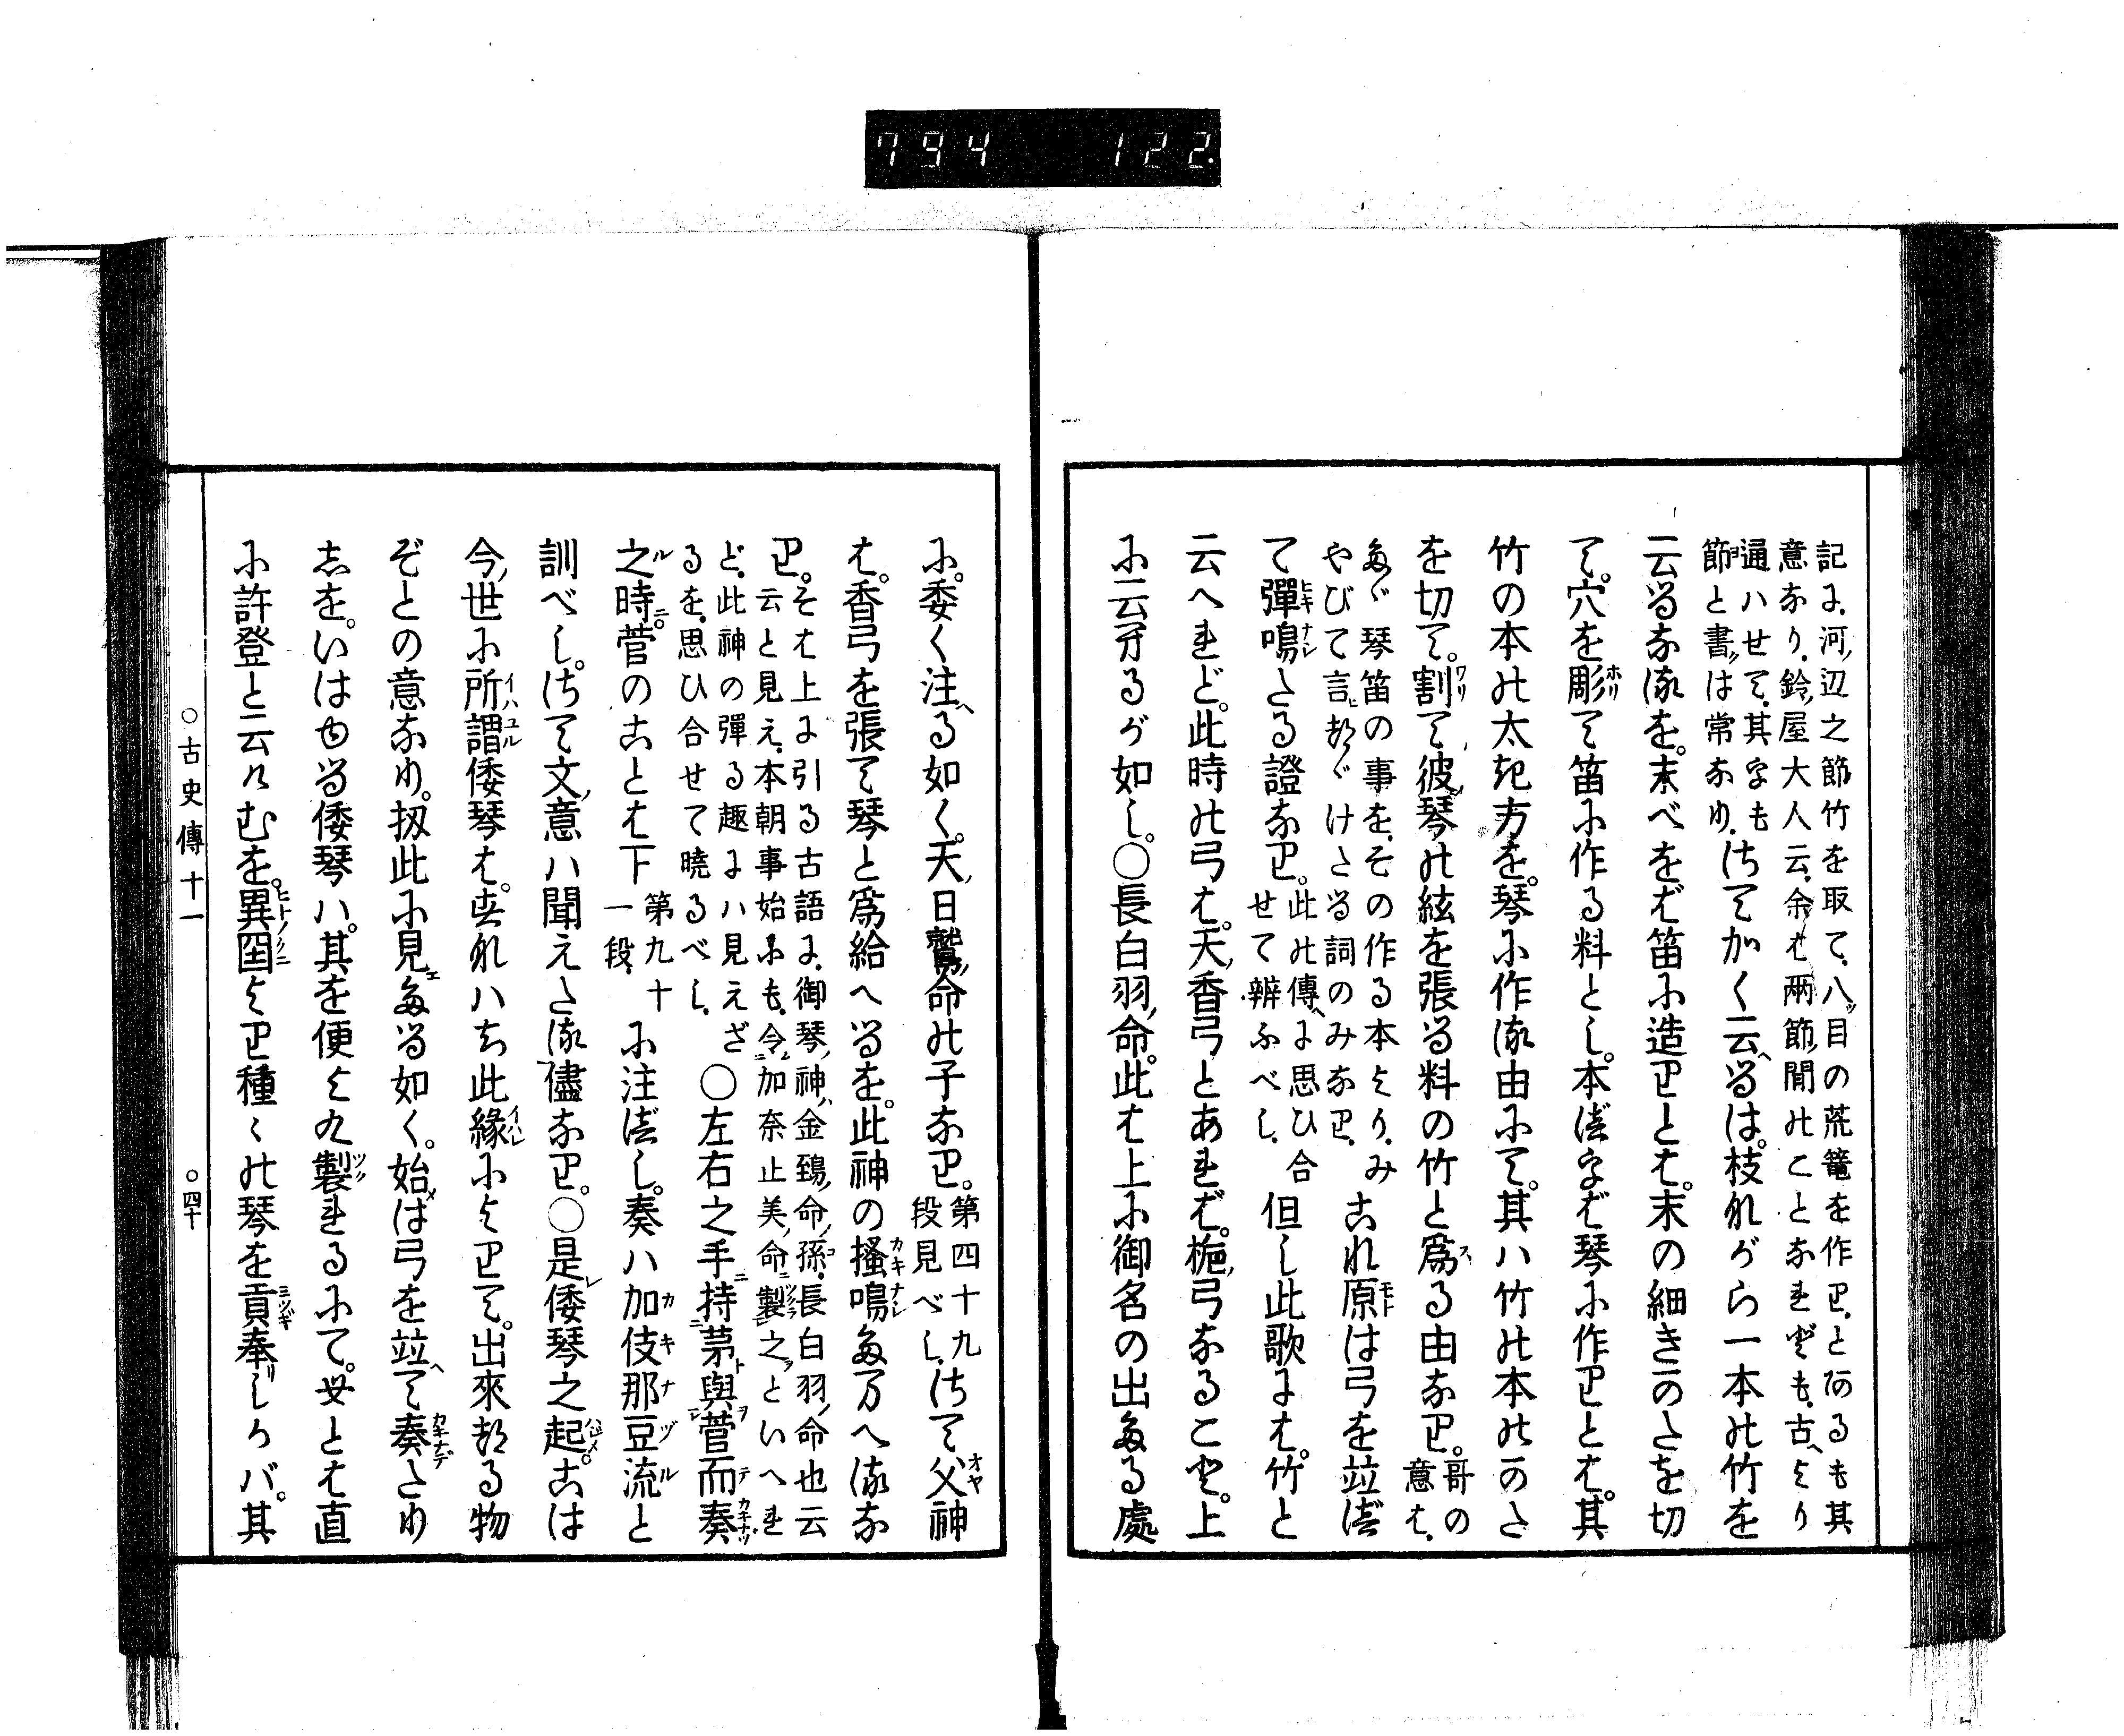 794 122
記に、河ノ辺之節竹を取て、八ッ目の荒篭を作り、とあるも其
意なり、鈴ノ屋大人云、余は両節ノ間のことなれども、古へより
通ハせて、其字も
節と書クは常なり、さてかく云へるは、枝ながら一本の竹を
云るなるを、末べをば笛に造りとは、末の細きかたを切
て、穴を彫て笛に作る料とし、本べをば琴に作りとは、其
竹の本の太き方を、琴に作る由にて、其ハ竹の本のかた
を切て、割て彼ノ琴の絃を張る料の竹と為る由なり、哥の
意は、
たゞ琴笛の事を、その作る本より、み
やびて言ヒかけたる詞のみなり、
これ原は弓を竝べ
て彈鳴たる證なり、此の傳へに思ひ合
せて辨ふべし、但し此歌には、竹と
云へれど、此時の弓は、天ノ香弓とあれば、梔弓なること、上
に云るが如し、○長白羽ノ命、此は上に御名の出たる處
に、委く注る如く、天ノ日鷲ノ命の子なり、第四十九
段見べし、さて父神
は、香弓を張て琴と為給へるを、此神の搔鳴たまへるな
り、そは上に引る古語に、御琴ノ神、金鵄ノ命ノ孫、長白羽ノ命也云
云と見え、本朝事始にも、令加奈止美ノ命製之といへれ
ど、此神の彈る趣には見えざ
るを、思ひ合せて曉るべし、○左右之手持茅與菅而奏
之時、菅のことは下第九十
一段、に注べし、奏ハ加伎那豆流と
訓べし、さて文ノ意ハ聞えたる儘なり、○是倭琴之起、こは
今ノ世に所謂倭琴は、すなハち此緣によりて、出來たる物
ぞとの意なり、扨此に見たる如く、始めは弓を竝へて奏たり
しを、いはゆる倭琴ハ、其を便よく製れるにて、もとは直
に許登と云けむを、異国より種々の琴を貢奉しかバ、其
○古史傳十一 ○四十